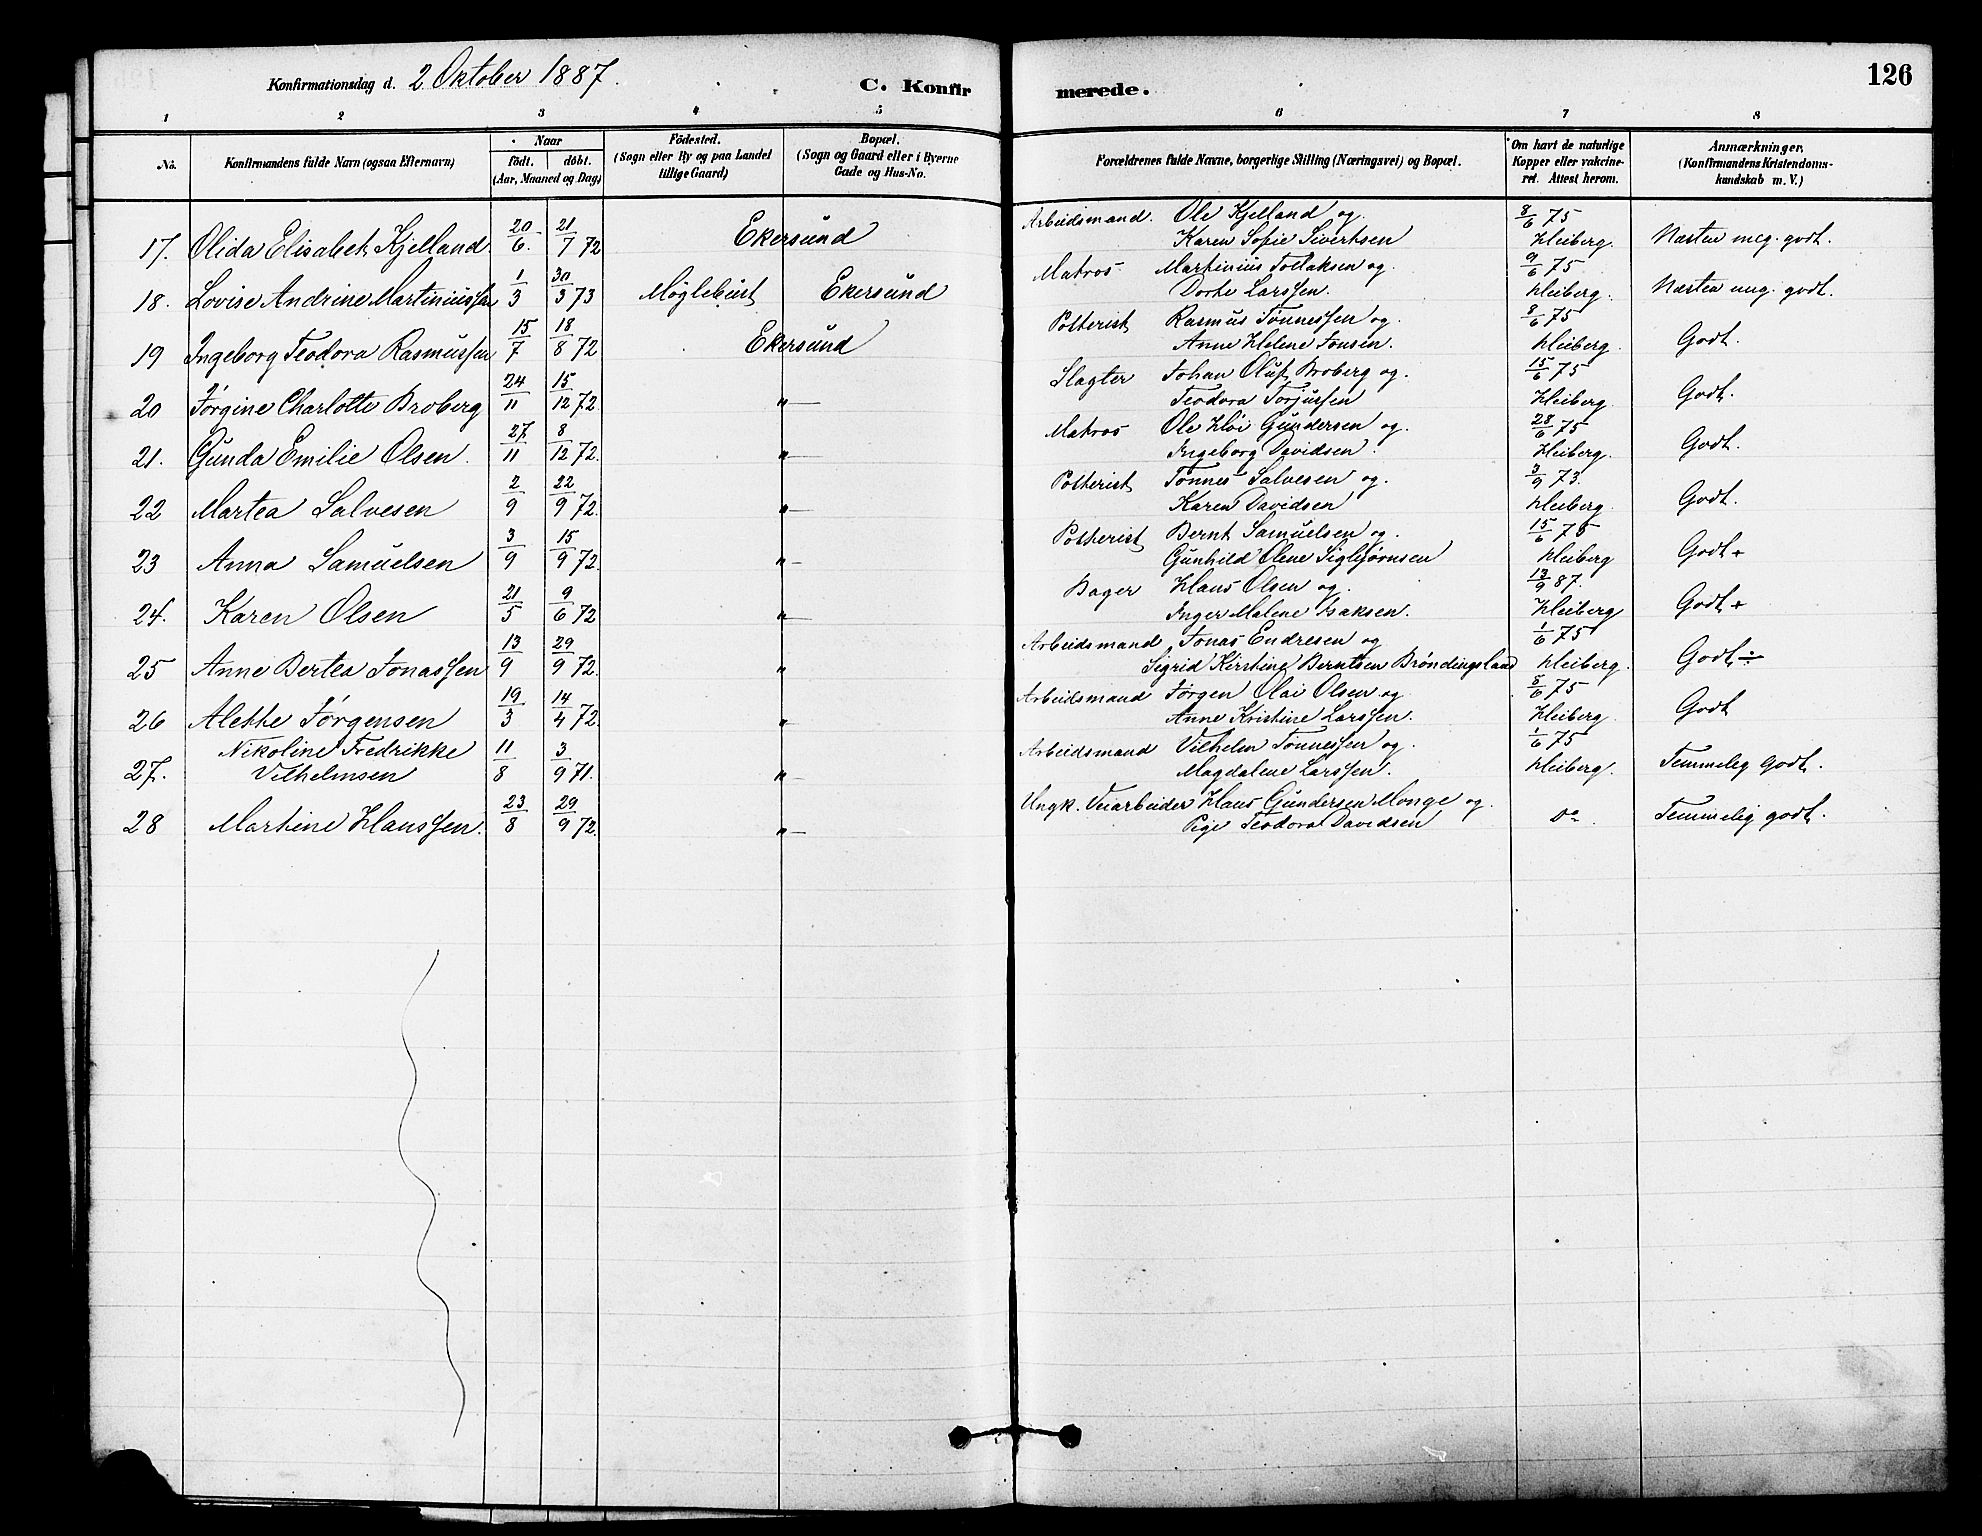 126
Konfirmationsdag d. 2 Oktober 1887.
C. Konfirmerede.
1 2 3 4 5 6 7 8
No. Konfirmandens fulde Narn (ogsaa Efternavn) Naar födt. döbt. (Aar, Maaned og Dag) Födested. (Sogn eller By og paa Landet tillige Gaard) Bopæl. (Sogn og Gaard eller i Byerne Gade og Hus-No. Forældrenes fulde Navne, borgerlige Stilling (Næringsvei) og Bopæl. Om havt de naturlige Kopper eller vakcineret. Attest herom. Anmærkninger. (Konfirmandens Kristendomskundskab m. V.)
17. Olida Elisabet Kjelland 20/6. 21/7 72 Ekersund Arbeidsmand. Ole Kjelland og. 8/6 75
Karen Sofie Sivertsen Heiberg. Næsten meg. godt.
18. Lovise Andrine Martiniussen 1/3 30/3 73 Møglebust Ekersund Matros Martinius Tollaksen og. 9/6 75
Dorte Larssen. Heiberg. Næsten meg. godt.
19 Ingeborg Teodora Rasmussen 15/7 18/8 72 Ekersund Potterist Rasmus Tønnessen og. 8/6 75
Anne Helene Jonsen. Heiberg. Godt.
20 Jørgine Charlotte Broberg 24/11 15/12 72. " — Slagter Johan Oluf Broberg og. 15/6 75
Teodora Torjussen Heiberg. Godt.
21. Gunda Emilie Olsen. 27/11 8/12 72. " — Matros Ole Høi Gundersen og. 28/6 75
Ingeborg Davidsen. Heiberg. Godt.
22 Martea Salvesen 2/9 22/9 72. " — Potterist Tønnes Salvesen og. 3/9 73.
Karen Davidsen Heiberg. Godt.
23 Anna Samuelsen 3/9 15/9 72. " — Potterist Bernt Samuelsen og. 15/6 75
Gunhild Olene Sigbjørnsen Heiberg Godt+
24. Karen Olsen 21/5 9/6 72 " — Bager Hans Olsen og. 13/9 87.
Inger Malene Isaksen. Heiberg Godt+
25 Anne Bertea Jonassen 13/9 29/9 72. " Arbeidsmand Jonas Endresen og 1/6 75
Sigrid Kirstine Berntsen Brøndingsland Heiberg. Godt÷
26 Alette Jørgensen 19/3 14/4 72. " Arbeidsmand Jørgen Olai Olsen og 8/6 75
Anne Kristine Larssen. Heiberg. Godt
27. Nikoline Fredrikke 11/8 3/9 71. " — Arbeidsmand Vilhelm Tønnessen og. 1/6 75
Vilhelmsen Magdalene Larssen. Heiberg. Temmelig Godt.
28 Martine Hanssen. 23/8 29/9 72. " — Ungk. Veiarbeider Hans Gundersen Monge og.
Pige Teodora Davidsen Do. Temmelig godt.